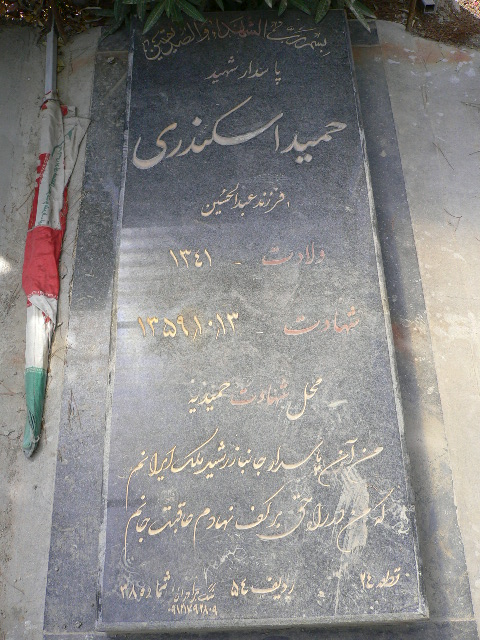 بسم رب الشهداء والصدیقین
پاسدار شهید
حمید اسکندری
فرزند عبدالحسین
ولادت - ۱۳۴۱
شهادت - ۱۳۵۹/۱۰/۱۳
محل شهادت حمیدیه
من آن پاسدار جانباز رشید ملک ایرانم
که من در راه حق بر کف نهادم عاقبت جانم
قطعه ۲۴ ردیف ۵۴ شماره ۳۸